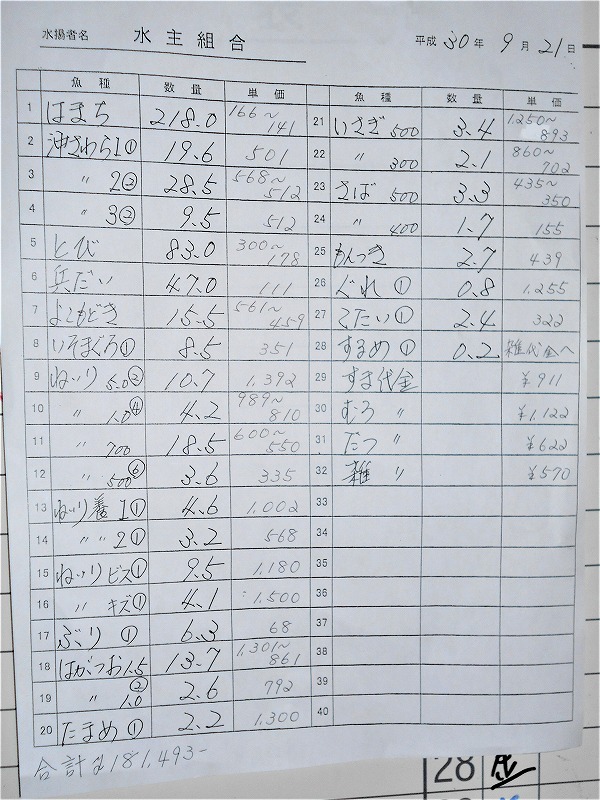 水揚者名 水主組合 平成30年9月21日
魚種 数量 単価
1 はまち 218.0 166〜141
2 沖ざわら1① 19.6 501
3 〃 2② 28.5 568〜512
4 〃 3② 9.5 512
5 とび 83.0 300〜178
6 兵だい 47.0 111
7 よこもどき 15.5 561〜459
8 いそまぐろ① 8.5 351
9 ねいり 5.0② 10.7 1,392
10 〃 1.0④ 4.2 989〜810
11 〃 700 18.5 600〜550
12 〃 500⑥ 3.6 335
13 ねいり養1① 4.6 1,002
14 〃 〃 2① 3.2 568
15 ねいりビス① 9.5 1,180
16 〃 キズ① 4.1 1,500
17 ぶり ① 6.3 68
18 はがつお1.5 13.7 1,301〜861
19 〃 1.0② 2.6 792
20 たまめ① 2.2 1,300
魚種 数量 単価
21 いさぎ 500 3.4 1250〜893
22 〃 300 2.1 860〜702
23 さば 500 3.3 435〜350
24 〃 400 1.7 155
25 もんつき 2.7 439
26 ぐれ ① 0.8 1,255
27 こたい① 2.4 322
28 するめ① 0.2 雑代金へ
29 すま代金 ¥911
30 むろ 〃 ¥1,122
31 だつ 〃 ¥622
32 雑 〃 ¥570
33
34
35
36
37
38
39
40
合計 ¥181,493-
28